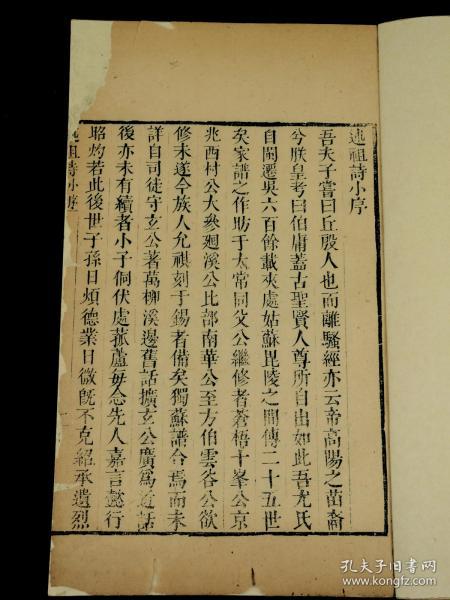 述祖詩小序
吾夫子嘗曰丘殷人也而離騷經亦云帝高陽之苗裔
兮朕皇考曰伯庸蓋古聖賢人尊所自出如此吾尤氏
自閩遷吳六百餘載夾處姑蘇毘陵之間傳二十五世
矣家譜之作昉于太常同父公繼修者蒼梧十峯公京
兆西村公大參廻溪公比部南華公至方伯雲谷公欲
修未遂今族人允祺刻于錫者備矣獨蘇譜合焉而未
詳自司徒守玄公著萬柳溪邊舊話擴玄公廣為近話
後亦未有續者小子侗伏處菰蘆每念先人嘉言懿行
昭灼若此後世子孫日煩德業日微既不克紹承遺烈
述祖詩小序
孔夫子旧书网
www.kongfz.com